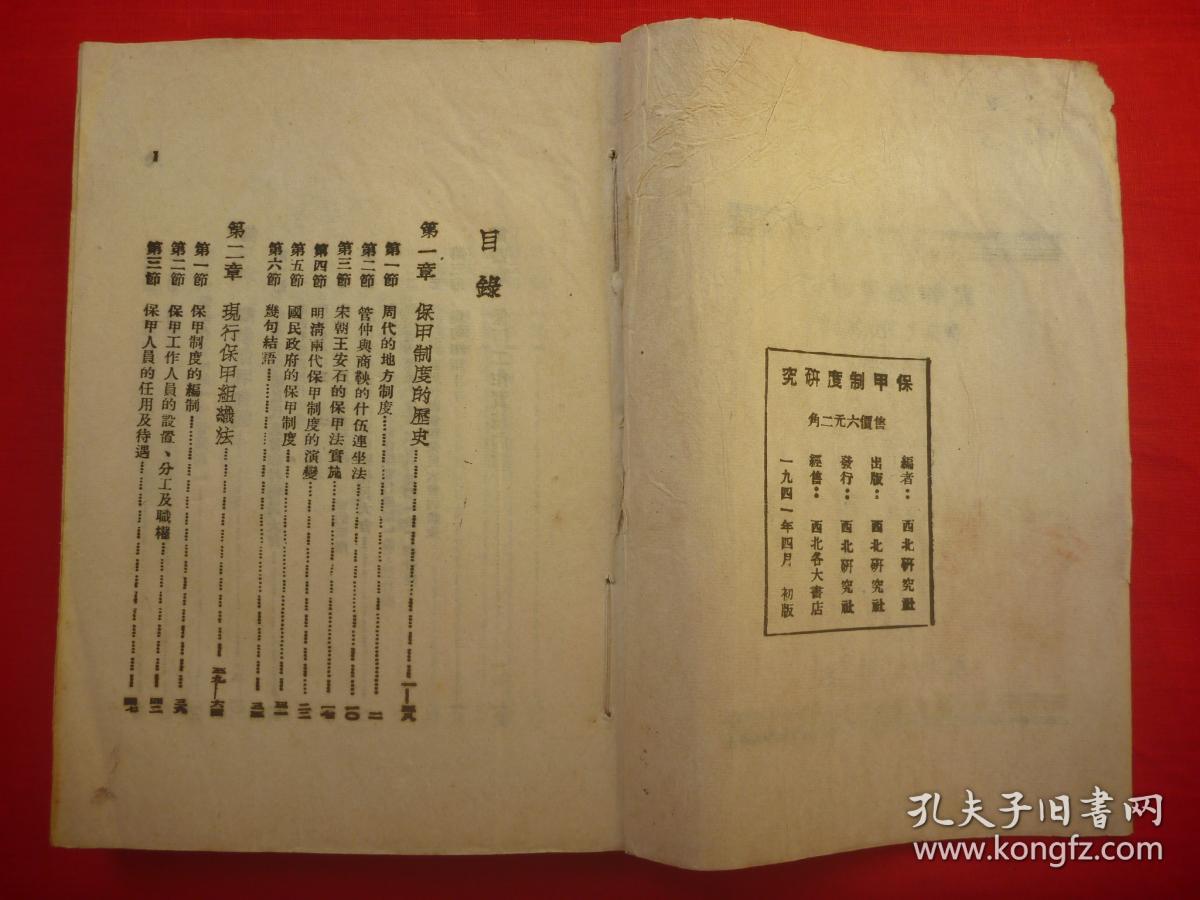 保甲制度研究
售價六元二角
編者：西北研究社
出版：西北研究社
發行：西北研究社
經售：西北各大書店
一九四一年四月 初版
目錄
第一章 保甲制度的歷史
第一節 周代的地方制度 二
第二節 管仲與商鞅的什伍連坐法 一〇
第三節 宋朝王安石的保甲法實施 一七
第四節 明清兩代保甲制度的演變
第五節 國民政府的保甲制度
第六節 幾句結語
第二章 現行保甲組織法
第一節 保甲制度的編制
第二節 保甲工作人員的設置、分工及職權
第三節 保甲人員的任用及待遇
1
孔夫子旧书网
www.kongfz.com